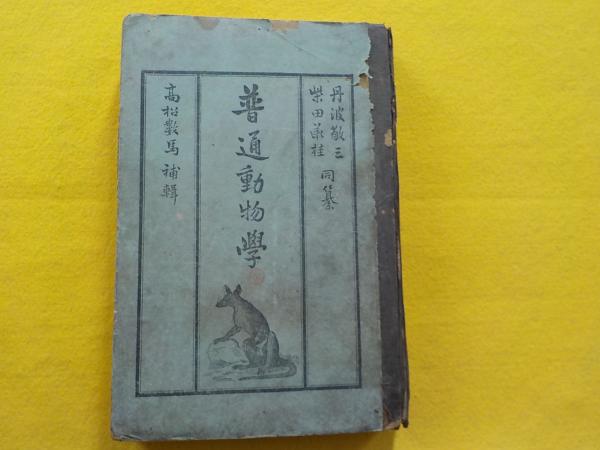 丹波敬三
柴田承桂 同纂
普通動物學
高松數馬 補輯